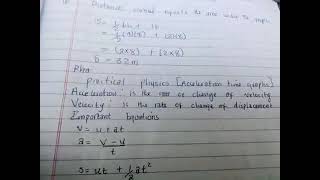 Distance covered equals the area under the graph
S = ½bh + lb
= ½(4)(8) + (2)(8)
= (2×8) + (2×8)
= 32m
practical physics [Acceleration time graphs]
Acceleration: is the rate of change of velocity
Velocity: is the rate of change of displacement
Important Equations
v = u + at
a = v - u / t
s = ut + ½at²